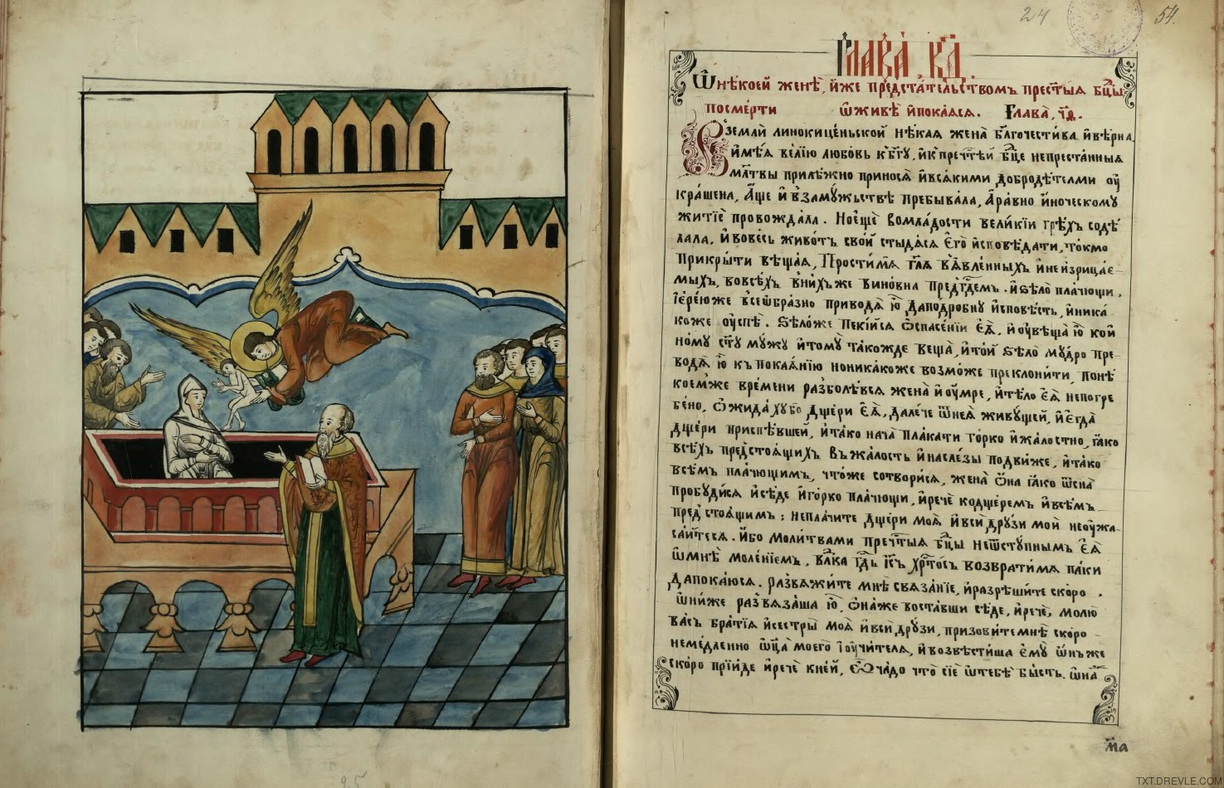 24
54.
Глава̀, к҃д.
Ѿнѣкоей женѣ, и҆же предста́тельствомъ прест҃ыѧ бц҃ы
посме́рти ѡ҆живѐ и҆покаѧсѧ. Глава̀, д҃.
Вземлѝ линокице́ньской нѣкаѧ жена̀ бл҃гочести́ва и҆вѣрна
и҆мѣѧ ве́лїю любо́вь кбг҃ꙋ, и҆кпречт҃ѣй бц҃е непреста́нныѧ
мл҃твы прилѣжно приносѧ̀ и҆всѧ́кими добродѣтелми оу҆
кра́шена, А҆́ще и҆взамꙋ́жьствѣ пребыва́ла, А҆ра́вно и҆ноческомꙋ
житїѐ провожда́ла. Ноещѐ вомла́дости вели́кїи грѣ́хъ содѣ
лала, и҆вове́сь живо́тъ сво́й стыдѧ́сѧ є҆гѡ̀ и҆сповѣдати, то́кмо
прикры́ти вѣща́ѧ, Прости́мѧ гл҃ѧ въѧвле́нныхъ и҆неи҆зрица́е-
мыхъ, вовсѣхъ вни́хъже вино́вна пред̾бг҃демъ. и҆ѕѣлѡ̀ пла́чющи,
і҆ере́юже всѧ́ѡбразно приводѧ̀ ю҆̀ дапо́дробнꙋ и҆сповѣсть, и҆ника
коже оу҆спѣ̀. Ѕѣло́же пекі́йсѧ ѡ҆спасе́нїи є҆ѧ̀, и҆оу҆вѣща̀ ю҆̀ кой
номꙋ ст҃ꙋ мꙋ́жꙋ и҆томꙋ̀ та́кожде вѣща̀, и҆то́й ѕѣлѡ̀ мꙋ́дро пре-
водѧ̀ ю҆̀ къпокаѧ́нїю нони́какоже возмо́же преклони́ти, понѣ
коемже вре́мени разболѣ́всѧ жена̀ и҆оу҆мре, и҆тѣло є҆ѧ̀ непогре
бено, ѡ҆жида́хꙋбо дще́ри є҆ѧ̀, дале́че ѿнеѧ живꙋ́щей, и҆є҆гда̀
дще́ри приспѣ́вшей, и҆та́ко нача̀ пла́кати го́рко и҆жа́лостно, ꙗ҆́ко
всѣхъ предстоѧ́щихъ въжа́лость и҆насле́зы подви́же, и҆та́ко
всѣмъ пла́чющимъ, что́же сотвори́сѧ, жена̀ ѻ҆на ꙗ҆́ко ѿсна̀
пробꙋди́сѧ и҆сѣде и҆го́рко пла́чющи, и҆речѐ кодще́ремъ и҆всѣмъ
предстоѧ́щимъ: непла́чите дще́ри моѧ̀ и҆вси́ дрꙋзи мои̑ неоу҆жа-
са́йтесѧ. и҆́бо моли́твами пречт҃ыѧ бц҃ы неѿстꙋ́пнымъ є҆ѧ̀
ѡ҆мнѣ̀ моле́нїемъ. влⷣка гдⷭ҇ь і҆и҃съ, хрⷭ҇то́съ возврати́мѧ па́ки
дапока́юсѧ. развѧжи́те мнѣ̀ свѧза́нїе, и҆разрѣши́те ско́ро.
ѡ҆ни́же развѧза́ша ю҆̀, ѻ҆на́же воста́вши сѣде, и҆речѐ, молю̀
ва́съ бра́тїѧ и҆се́стры моѧ̀ и҆вси́ дрꙋзи, призови́темнѣ ско́ро
неме́дленно ѻ҆ц҃а̀ моегѡ̀ і҆оу҆чи́телѧ, и҆возвѣсти́ша є҆мꙋ̀ ѻ҆нъже
ско́ро прїи́де и҆речѐ кней, ѽча́до что̀ сїѐ ѡ҆тебѣ̀ бы́сть. ѻ҆на̀
ма
25
TXT.DREVLE.COM